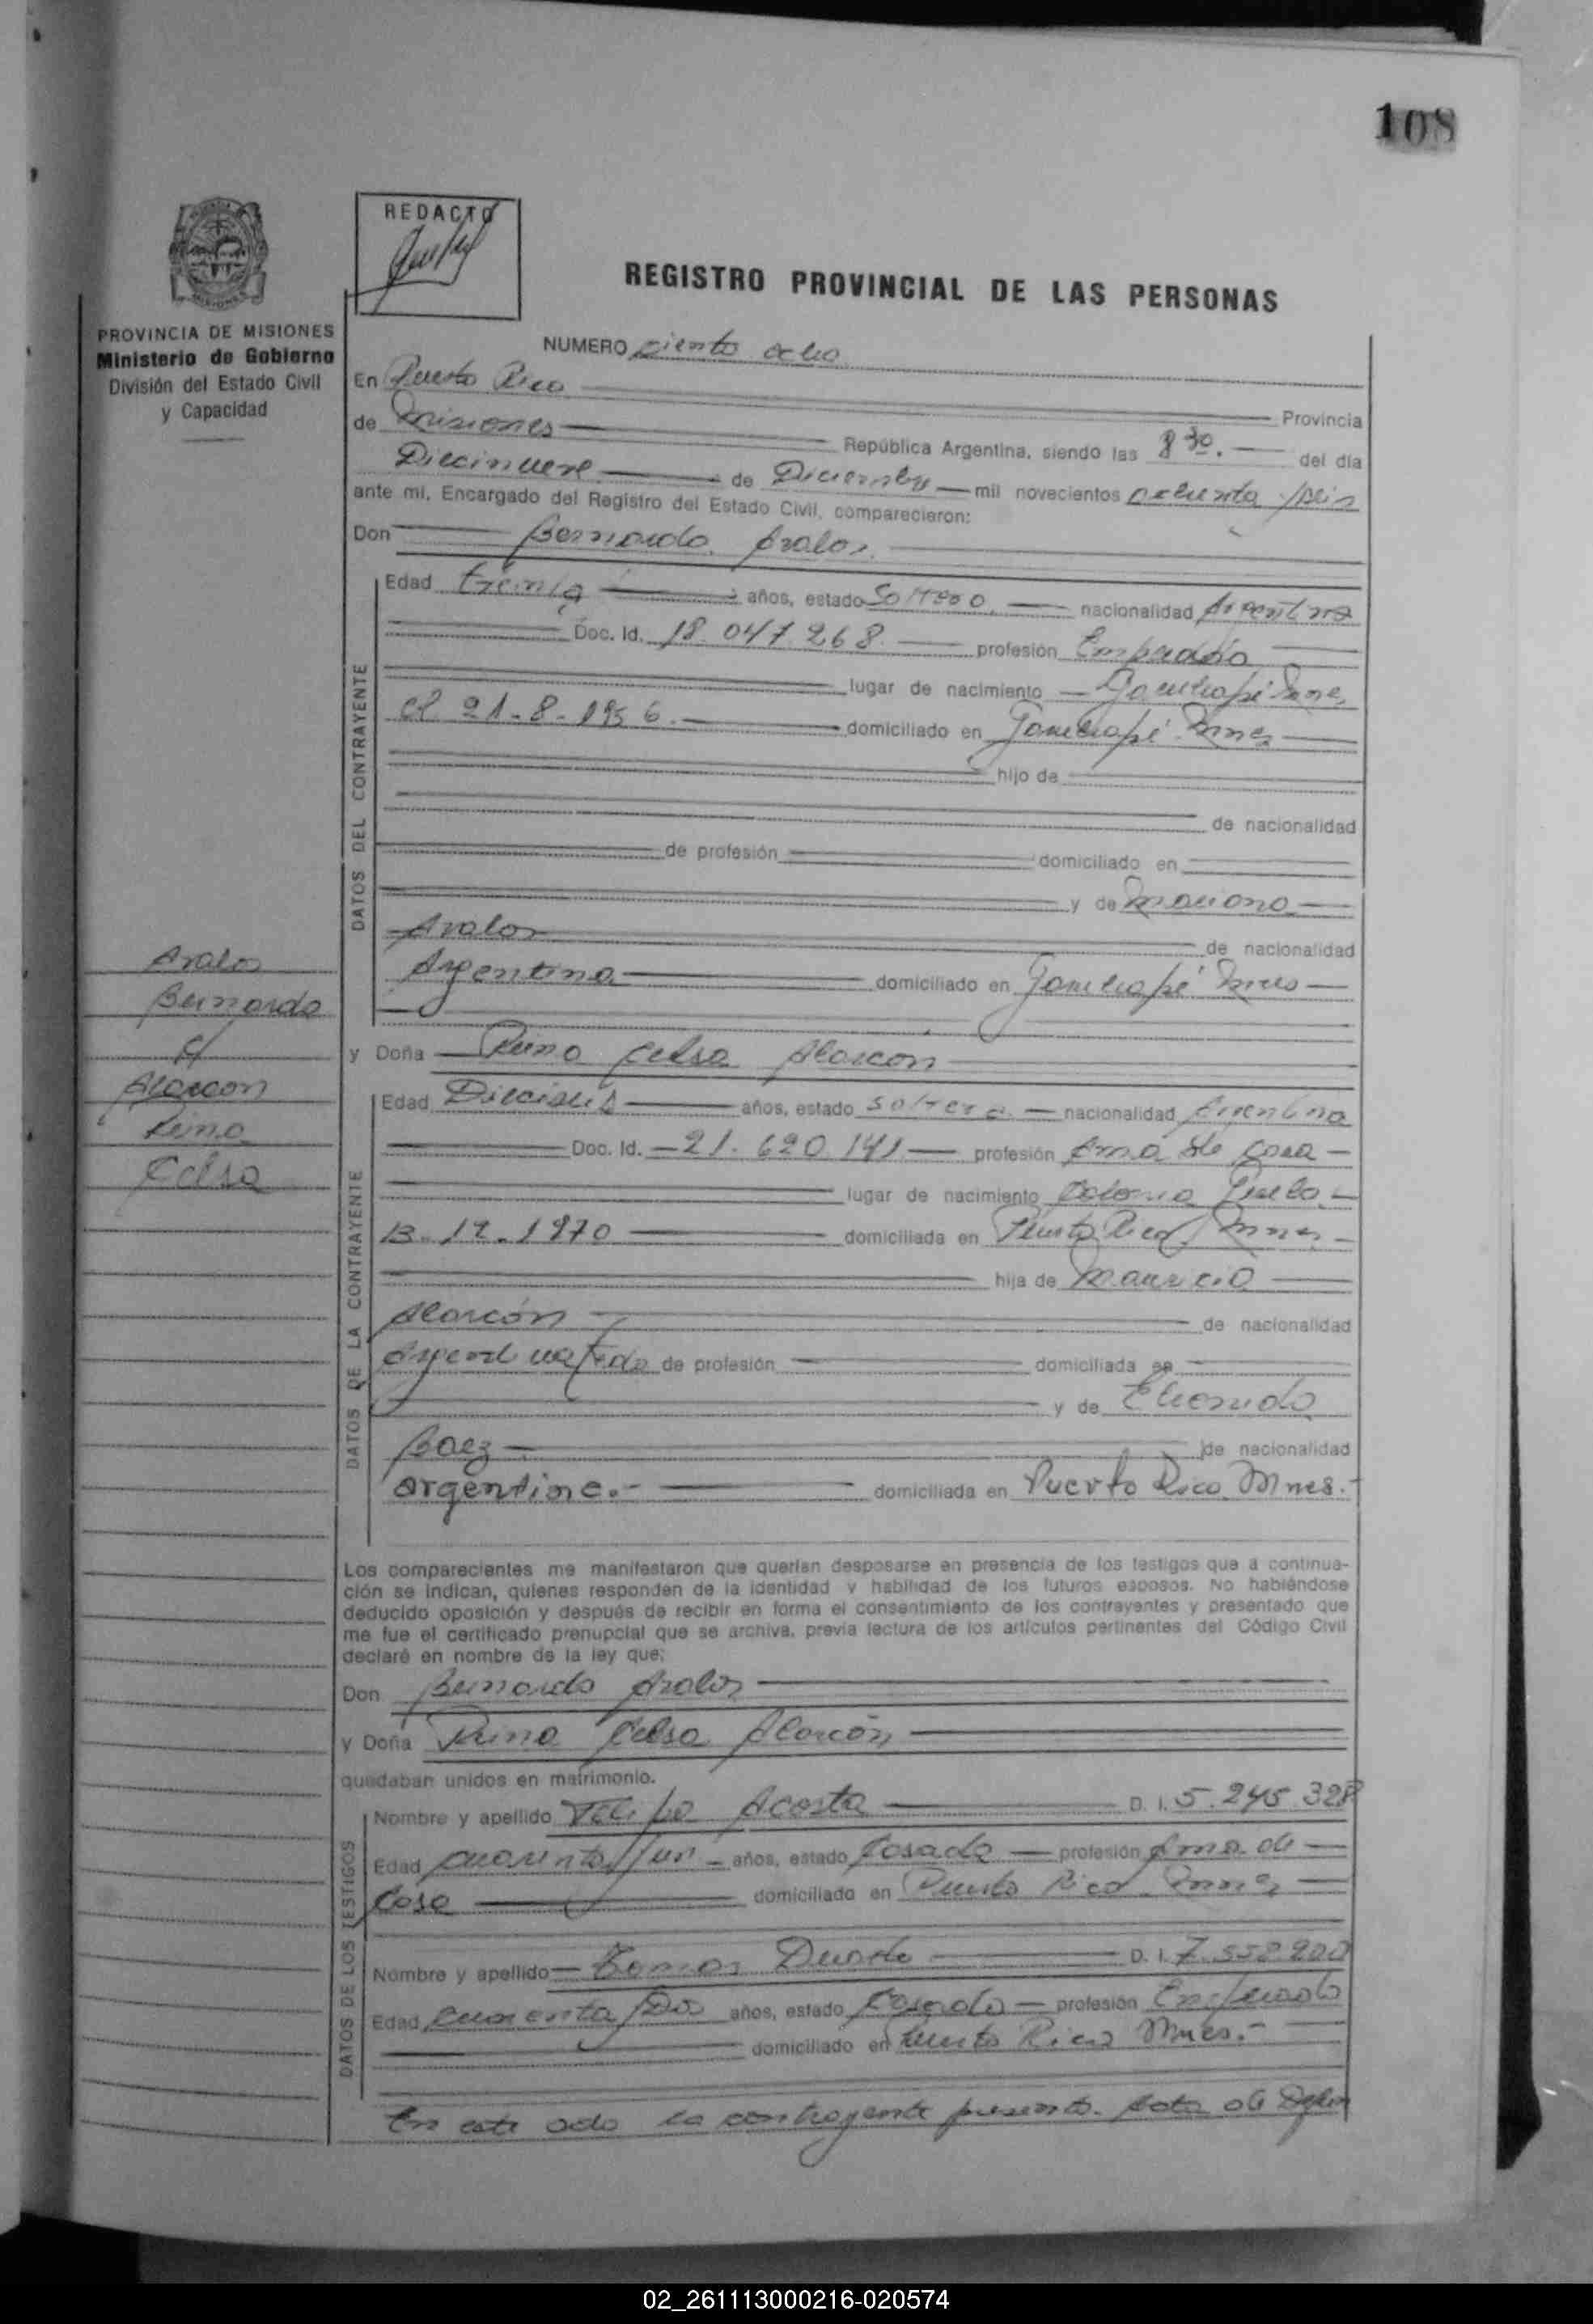 108
REDACTO
REGISTRO PROVINCIAL DE LAS PERSONAS
PROVINCIA DE MISIONES
Ministerio de Gobierno
División del Estado Civil
y Capacidad
NUMERO ciento ocho
En Puerto Rico Provincia
de Misiones República Argentina, siendo las 8 30. del día
Diecinueve de Diciembre mil novecientos ochenta y seis
ante mí, Encargado del Registro del Estado Civil, comparecieron:
Don Bernardo Avalos
DATOS DEL CONTRAYENTE
Edad treinta años, estado Soltero nacionalidad Argentina
Doc. Id. 18.047.268. profesión Empleado
lugar de nacimiento Garuhapé Mnes,
el 21-8-1956. domiciliado en Garuhapé Mnes
hijo de
de nacionalidad
de profesión domiciliado en
y de Mariana
Avalos de nacionalidad
Argentina domiciliado en Garuhapé Mnes
Avalos
Bernardo
c/
Alarcon
Reina
Celsa
y Doña Reina Celsa Alarcón
DATOS DE LA CONTRAYENTE
Edad Dieciseis años, estado soltera nacionalidad Argentina
Doc. Id. 21.620.141 profesión Ama de casa
lugar de nacimiento Colonia
13.12.1970 domiciliada en Puerto Rico, Mnes.
hija de Mauricio
Alarcón de nacionalidad
de profesión domiciliada en
y de
Baez de nacionalidad
argentina.- domiciliada en Puerto Rico Mnes.-
Los comparecientes me manifestaron que querían desposarse en presencia de los testigos que a continua-
ción se indican, quienes responden de la identidad y habilidad de los futuros esposos. No habiéndose
deducido oposición y después de recibir en forma el consentimiento de los contrayentes y presentado que
me fue el certificado prenupcial que se archiva, previa lectura de los artículos pertinentes del Código Civil
declaré en nombre de la ley que:
Don Bernardo Avalos
y Doña Reina Celsa Alarcón
quedaban unidos en matrimonio.
DATOS DE LOS TESTIGOS
Nombre y apellido Felipa Acosta D. I. 5.245.328
Edad cuarenta y un años, estado Casada profesión Ama de
Casa domiciliado en Puerto Rico Mnes
Nombre y apellido Tomas Duarte D. I. 7.558.200
Edad cuarenta y Dos años, estado Casado profesión Empleado
domiciliado en Puerto Rico Mnes.-
En este acto la contrayente presenta
02_261113000216-020574